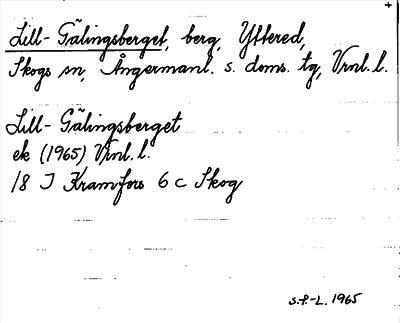 Lill-Gälingsberget, berg, Yttered,
Skogs sn, Ångermanl. s. doms. tg, Vrnl. l.
Lill-Gälingsberget
ek (1965) Vrnl. l.
18 I Kramfors 6 c Skog
S.P.-L. 1965